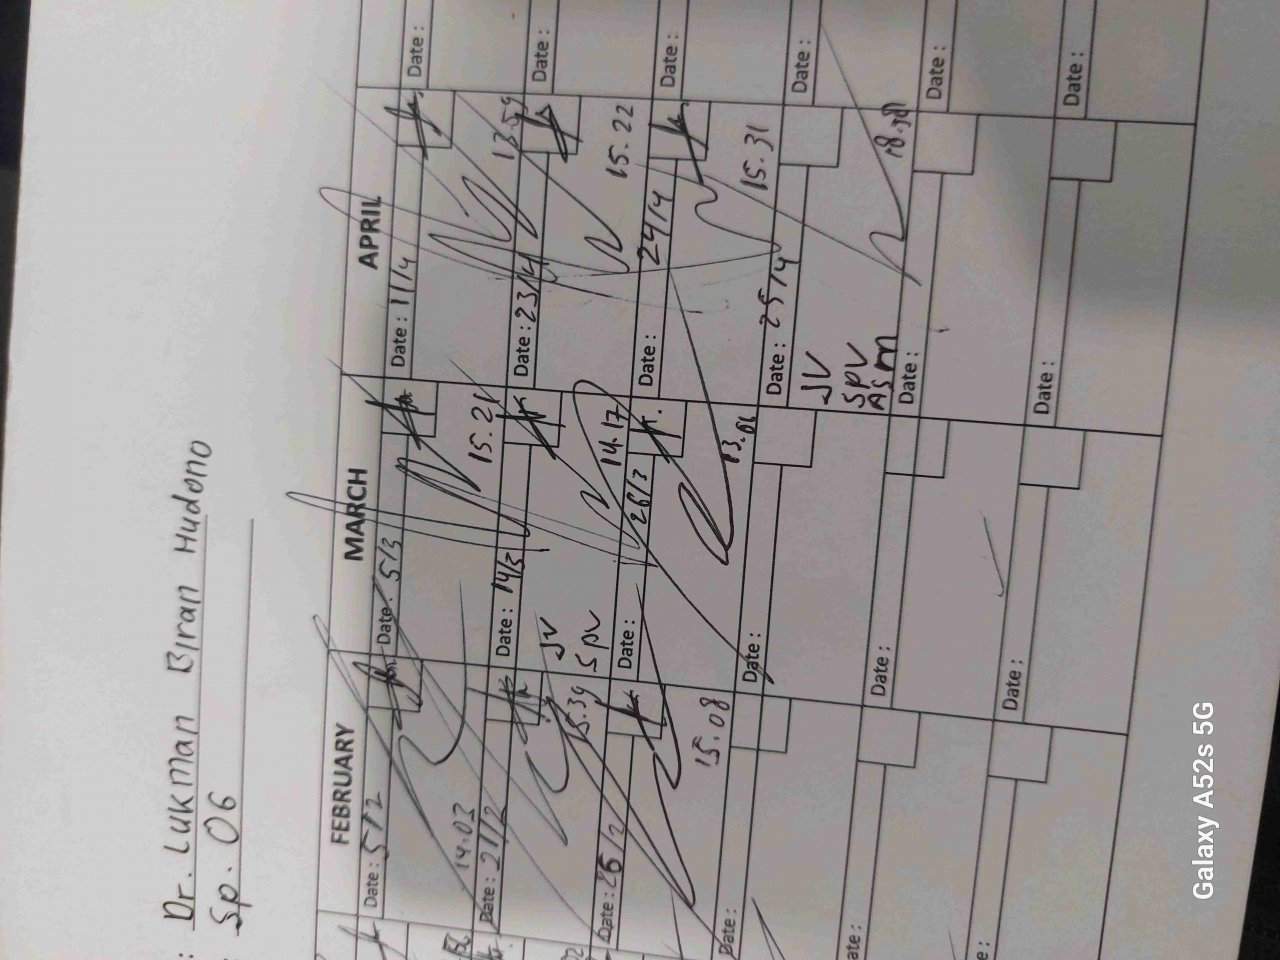 : Dr. Lukman Biran Hudono
Sp. 06
FEBRUARY
MARCH
APRIL
Date : 5/2
Date : 5/3
Date : 11/4
Date :
14.03
15.21
13.59
Date : 21/2
Date : 14/3
Date : 23/4
Date :
15.39
JV
SPV
14.17
15.22
Date : 26/2
Date : 26/3
Date : 24/4
Date :
15.08
13.06
15.31
Date :
Date :
Date : 25/4
Date :
JV
SPV
ASM
18.30
ate :
Date :
Date :
Date :
e :
Date :
Date :
Date :
Galaxy A52s 5G